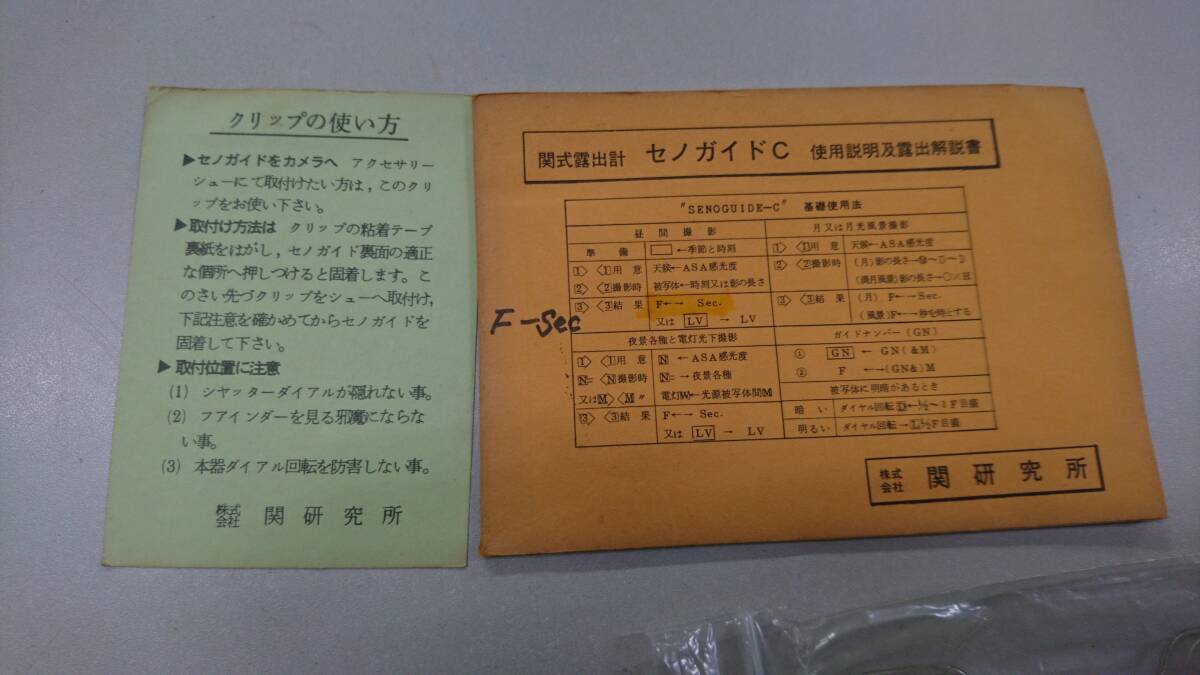 クリップの使い方
▶セノガイドをカメラへ アクセサリー
シューにて取付けたい方は，このクリ
ップをお使い下さい。
▶取付け方法は クリップの粘着テープ
裏紙をはがし，セノガイド裏面の適正
な個所へ押しつけると固着します。こ
のさい先づクリップをシューへ取付け，
下記注意を確かめてからセノガイドを
固着して下さい。
▶取付位置に注意
(1) シヤッターダイアルが隠れない事。
(2) フアインダーを見る邪魔にならな
い事。
(3) 本器ダイアル回転を防害しない事。
株式会社 関研究所
関式露出計 セノガイドC 使用説明及露出解説書
"SENOGUIDE-C" 基礎使用法
昼間撮影
準備 ←季節と時刻
①〉〈1用意 天候←ASA感光度
②〉〈2撮影時 被写体←時刻又は影の長さ
③〉〈3結果 F←→ Sec.
又は LV → LV
F-Sec
夜景各種と電灯光下撮影
①〉〈1用意 N ←ASA感光度
N=〈N撮影時 N=→夜景各種
又はM〉〈M〃 電灯W←光源被写体間M
③〉〈3結果 F←→ Sec.
又は LV → LV
月又は月光風景撮影
①〉〈1用意 天候←ASA感光度
②〉〈2撮影時 (月)影の長さ→
(満月風景)影の長さ→
③〉〈3結果 (月) F←→Sec.
(風景)F←→秒を時とする
ガイドナンバー(GN)
① GN ← GN(&M)
② F ←→(GN&)M
被写体に明暗があるとき
暗い ダイヤル回転D←½〜1F目盛
明るい ダイヤル回転→L½F目盛
株式会社 関研究所